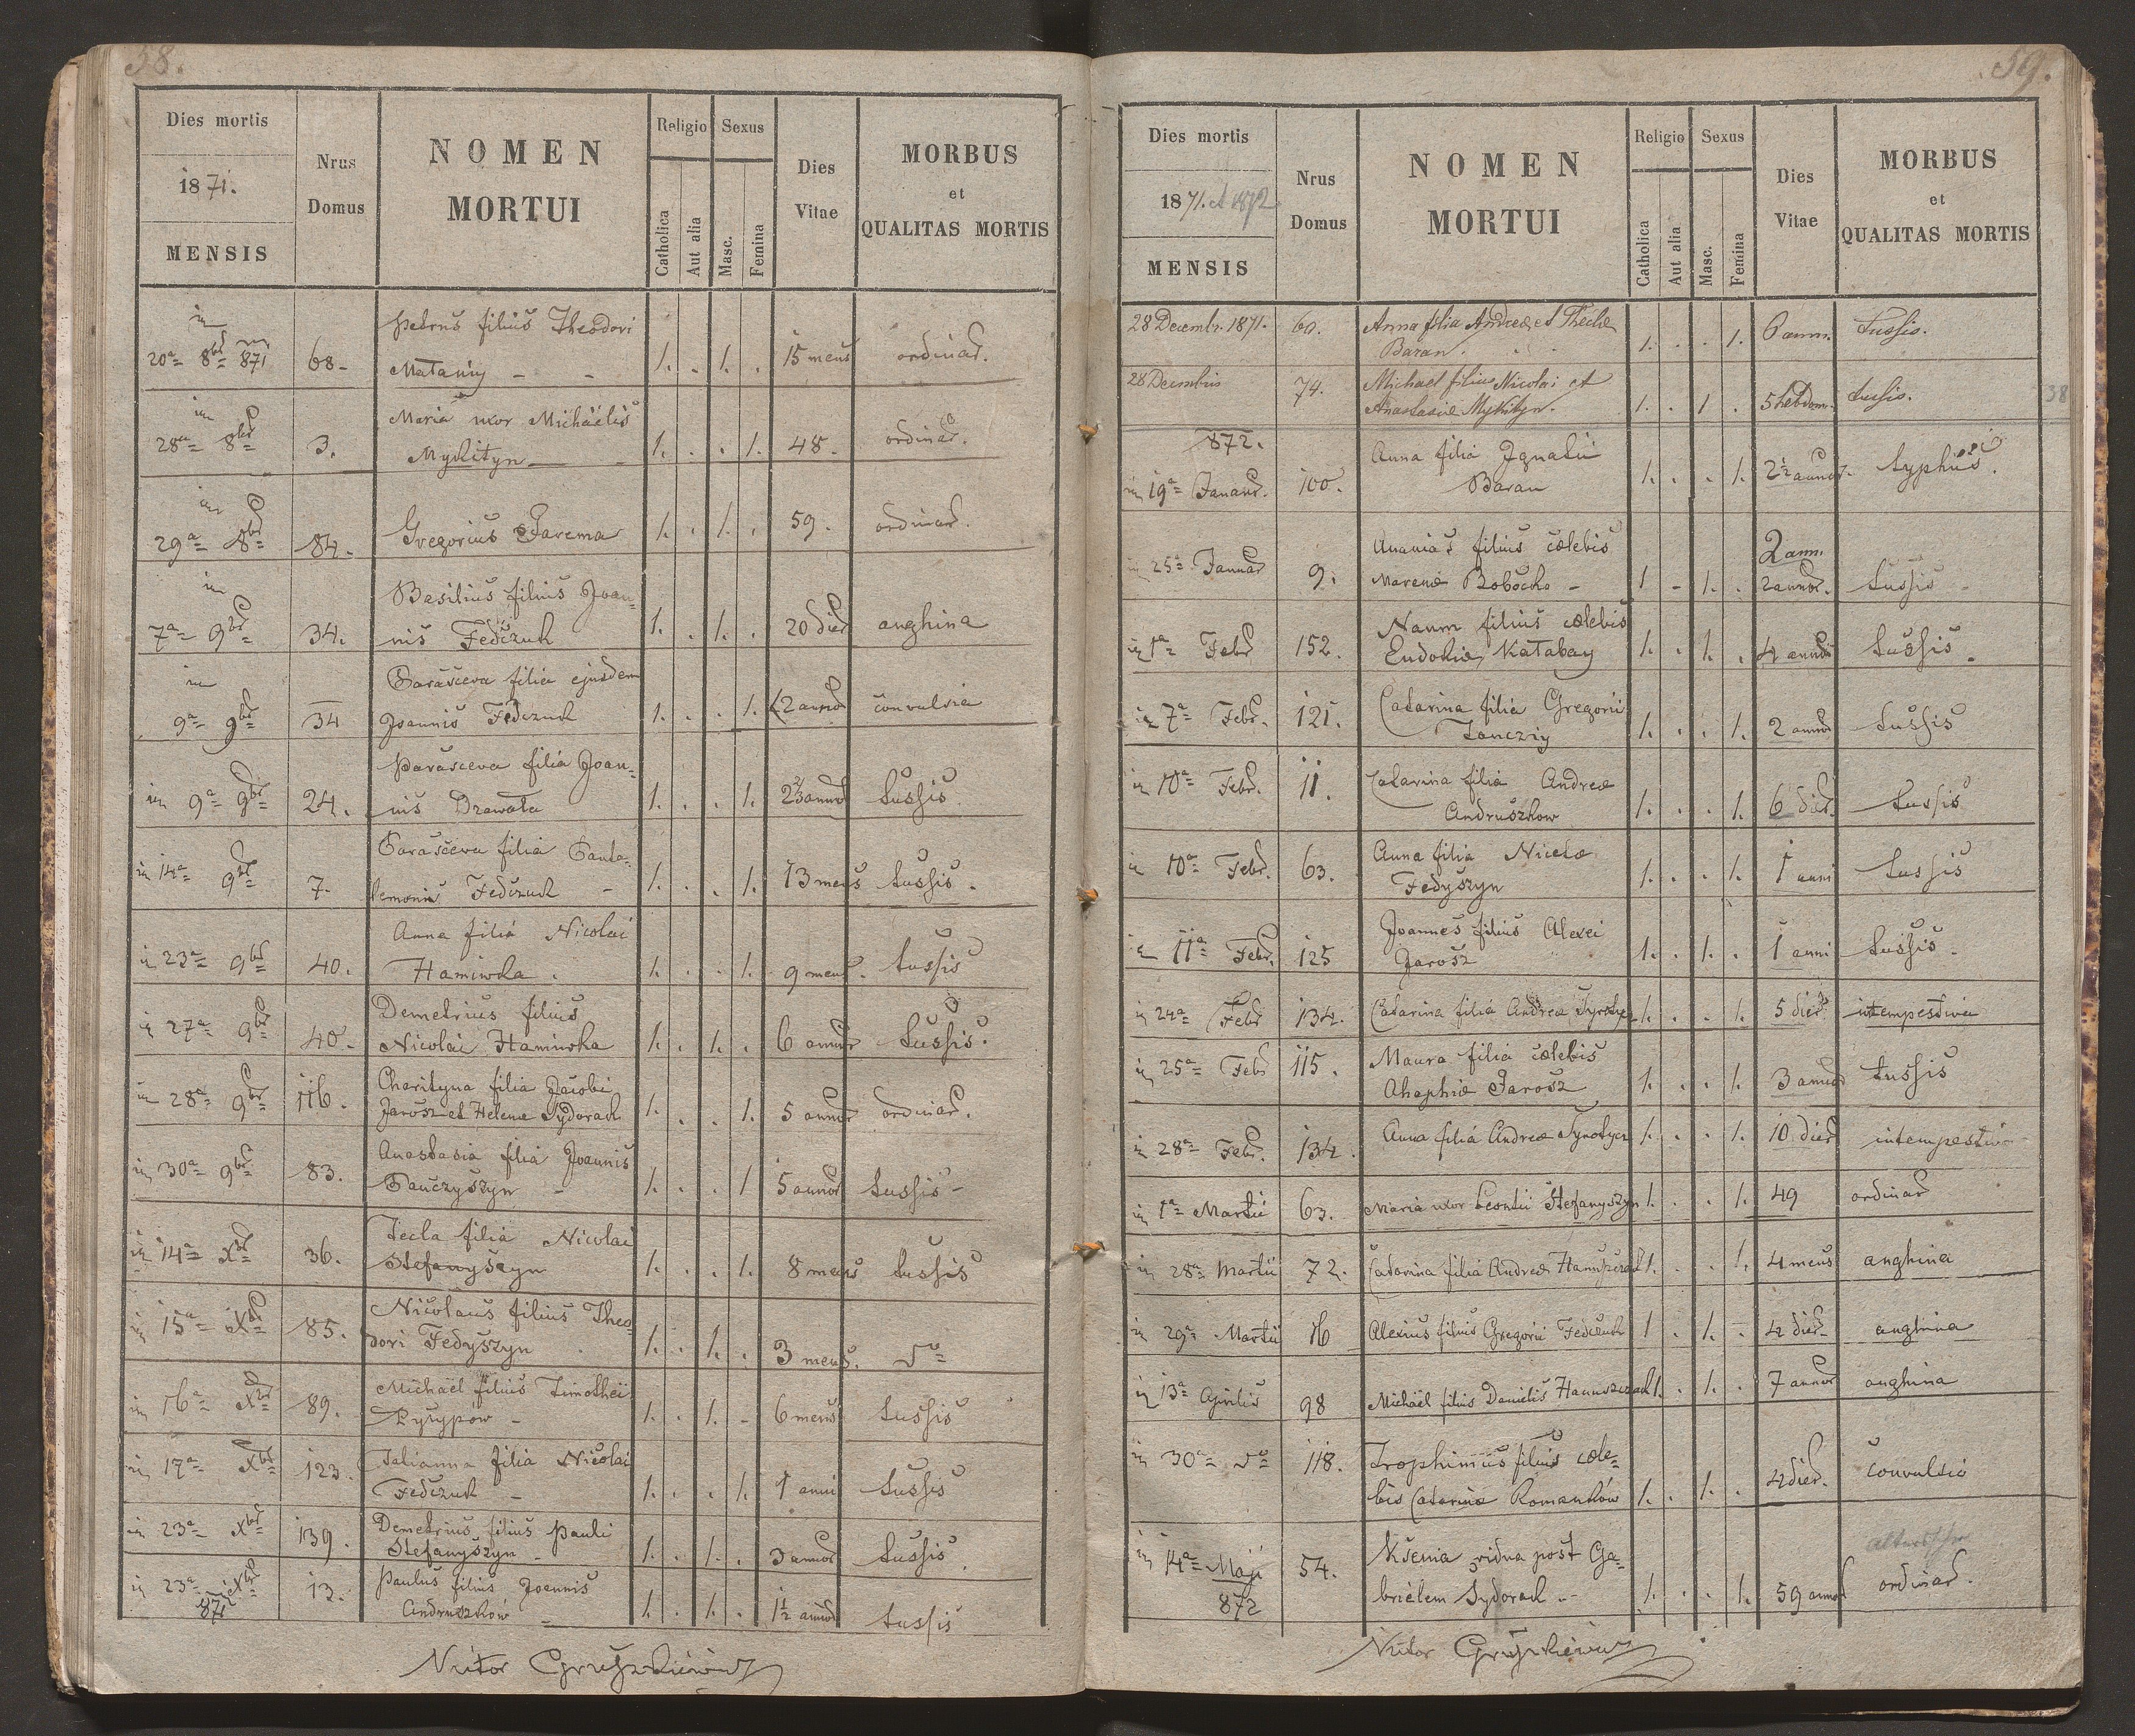 58.
Dies mortis
1871.
MENSIS
Nrus
Domus
NOMEN
MORTUI
Religio
Catholica
Aut alia
Sexus
Masc.
Femina
Dies
Vitae
MORBUS
et
QUALITAS MORTIS
in
Petrus filius Theodori
20a 8br 871 68 Mataniy 1. . 1. . 15 mens ordinar.
in
Maria uxor Michaëlis
28a 8br 3. Mykityn 1. . . 1. 48. ordinar.
in
29a 8br 84. Gregorius Jarema 1. . 1. . 59. ordinar.
in
Basilius filius Joan-
7a 9br 34. nis Fedczuk 1. . 1. . 20 dier anghina
in
Parasceva filia ejusdem
9a 9br 34 Joannis Fedczuk 1. . . 1. 2 annor convulsia
Parasceva filia Joan-
in 9a 9br 24. nis Drawata 1. . . 1. 2 2/3 annor tussis
Parasceva filia Panta-
in 14a 9br 7. lemonis Fedczuk 1. . . 1. 13 mens tussis.
Anna filia Nicolai
in 23a 9br 40. Hamiwka. 1. . . 1. 9 mens. tussis
Demetrius filius
in 27a 9br 40. Nicolai Hamiwka 1. . 1. . 6 annor tussis.
Charityna filia Jacobi
in 28a 9br 116. Jarosz et Helenæ Sydorack 1. . . 1. 5 annor ordinar.
Anastasia filia Joannis
in 30a 9br 83. Panczyszyn 1. . . 1 5 annor tussis
Tecla filia Nicolai
in 14a Xbr 36. Stefanyszyn 1. . . 1. 8 mens tussis
Nicolaus filius Theo-
in 15a Xbr 85. dori Fedyszyn 1. . 1. . 3 mens. do
Michaël filius Timothei
in 16a Xbr 89. Pysypów 1. . 1. - 6 mens tussis
Julianna filia Nicolai
in 17a Xbr 123. Fedczuk 1. . . 1. 1 anni tussis
Demetrius filius Pauli
in 23a Xbr 139. Stefanyszyn 1. . 1. . 3 annor tussis
Paulus filius Joannis
in 23a Xbr 871 13. Andruszków 1. . 1. . 1 1/2 annor tussis
59.
Dies mortis
1871. et 1872
MENSIS
Nrus
Domus
NOMEN
MORTUI
Religio
Catholica
Aut alia
Sexus
Masc.
Femina
Dies
Vitae
MORBUS
et
QUALITAS MORTIS
28 Decembr. 1871. 60. Anna filia Andreæ et Theclæ
Baran. 1. . . 1. 6 ann. tussis.
28 Decembris 74. Michael filius Nicolai et
Anastasiæ Mykityn. 1. . 1 . 5 hebdom. tussis.
38
872.
Anna filia Ignatii
in 19a Januar. 100. Baran 1. . . 1. 2 1/2 annor. typhus.
Ananias filius cœlebis 2 ann.
in 25a Januar 9. Marenæ Bobocka 1 - 1. . 2 annor. tussis
Naum filius cœlebis
in 1a Febr 152. Eudokiæ Katabay 1. . 1. . 4 annor tussis
Catarina filia Gregorii
in 7a Febr. 121. Tancziy 1. . . 1. 2 annor tussis
Catarina filia Andreæ
in 10a Febr. 11. Andruszkow 1. . . 1. 6 dier. tussis
Anna filia Nicetæ
in 10a Febr. 63. Fedyszyn 1. . . 1. 1 anni tussis
Joannes filius Alexei
in 11a Febr. 125 Jarosz 1. . 1. . 1 anni tussis.
in 24a Febr 134. Catarina filia Andreæ 1. . . 1. 5 dier. intempestiva
Maura filia cœlebis
in 25a Febr 115. Ahaphiæ Jarosz 1. . . 1. 3 annor tussis
in 28a Febr. 134. Anna filia Andreæ 1. . . 1. 10 dier intempestiva
in 1a Martii 63. Maria uxor Leontii Stefanyszyn 1. . . 1. 49 ordinar
in 28a Martii 72. Catarina filia Andreæ 1. . . 1. 4 mens anghina
in 29a Martii 16 Alexius filius Gregorii Fedczuk 1 . 1. - 4 dier anghina
in 13a Aprilis 98 Michaël filius Danielis Hanuszczak 1. . 1. . 7 annor anghina
in 30a do 118. Trophimus filius cœle-
bis Catarinæ Romanków 1. . 1. . 4 dier. convulsio
in 14a Maji 872 54. Ksenia vidua post Ga-
brielem Sydorack 1. . . 1. 59 annor ordinar.